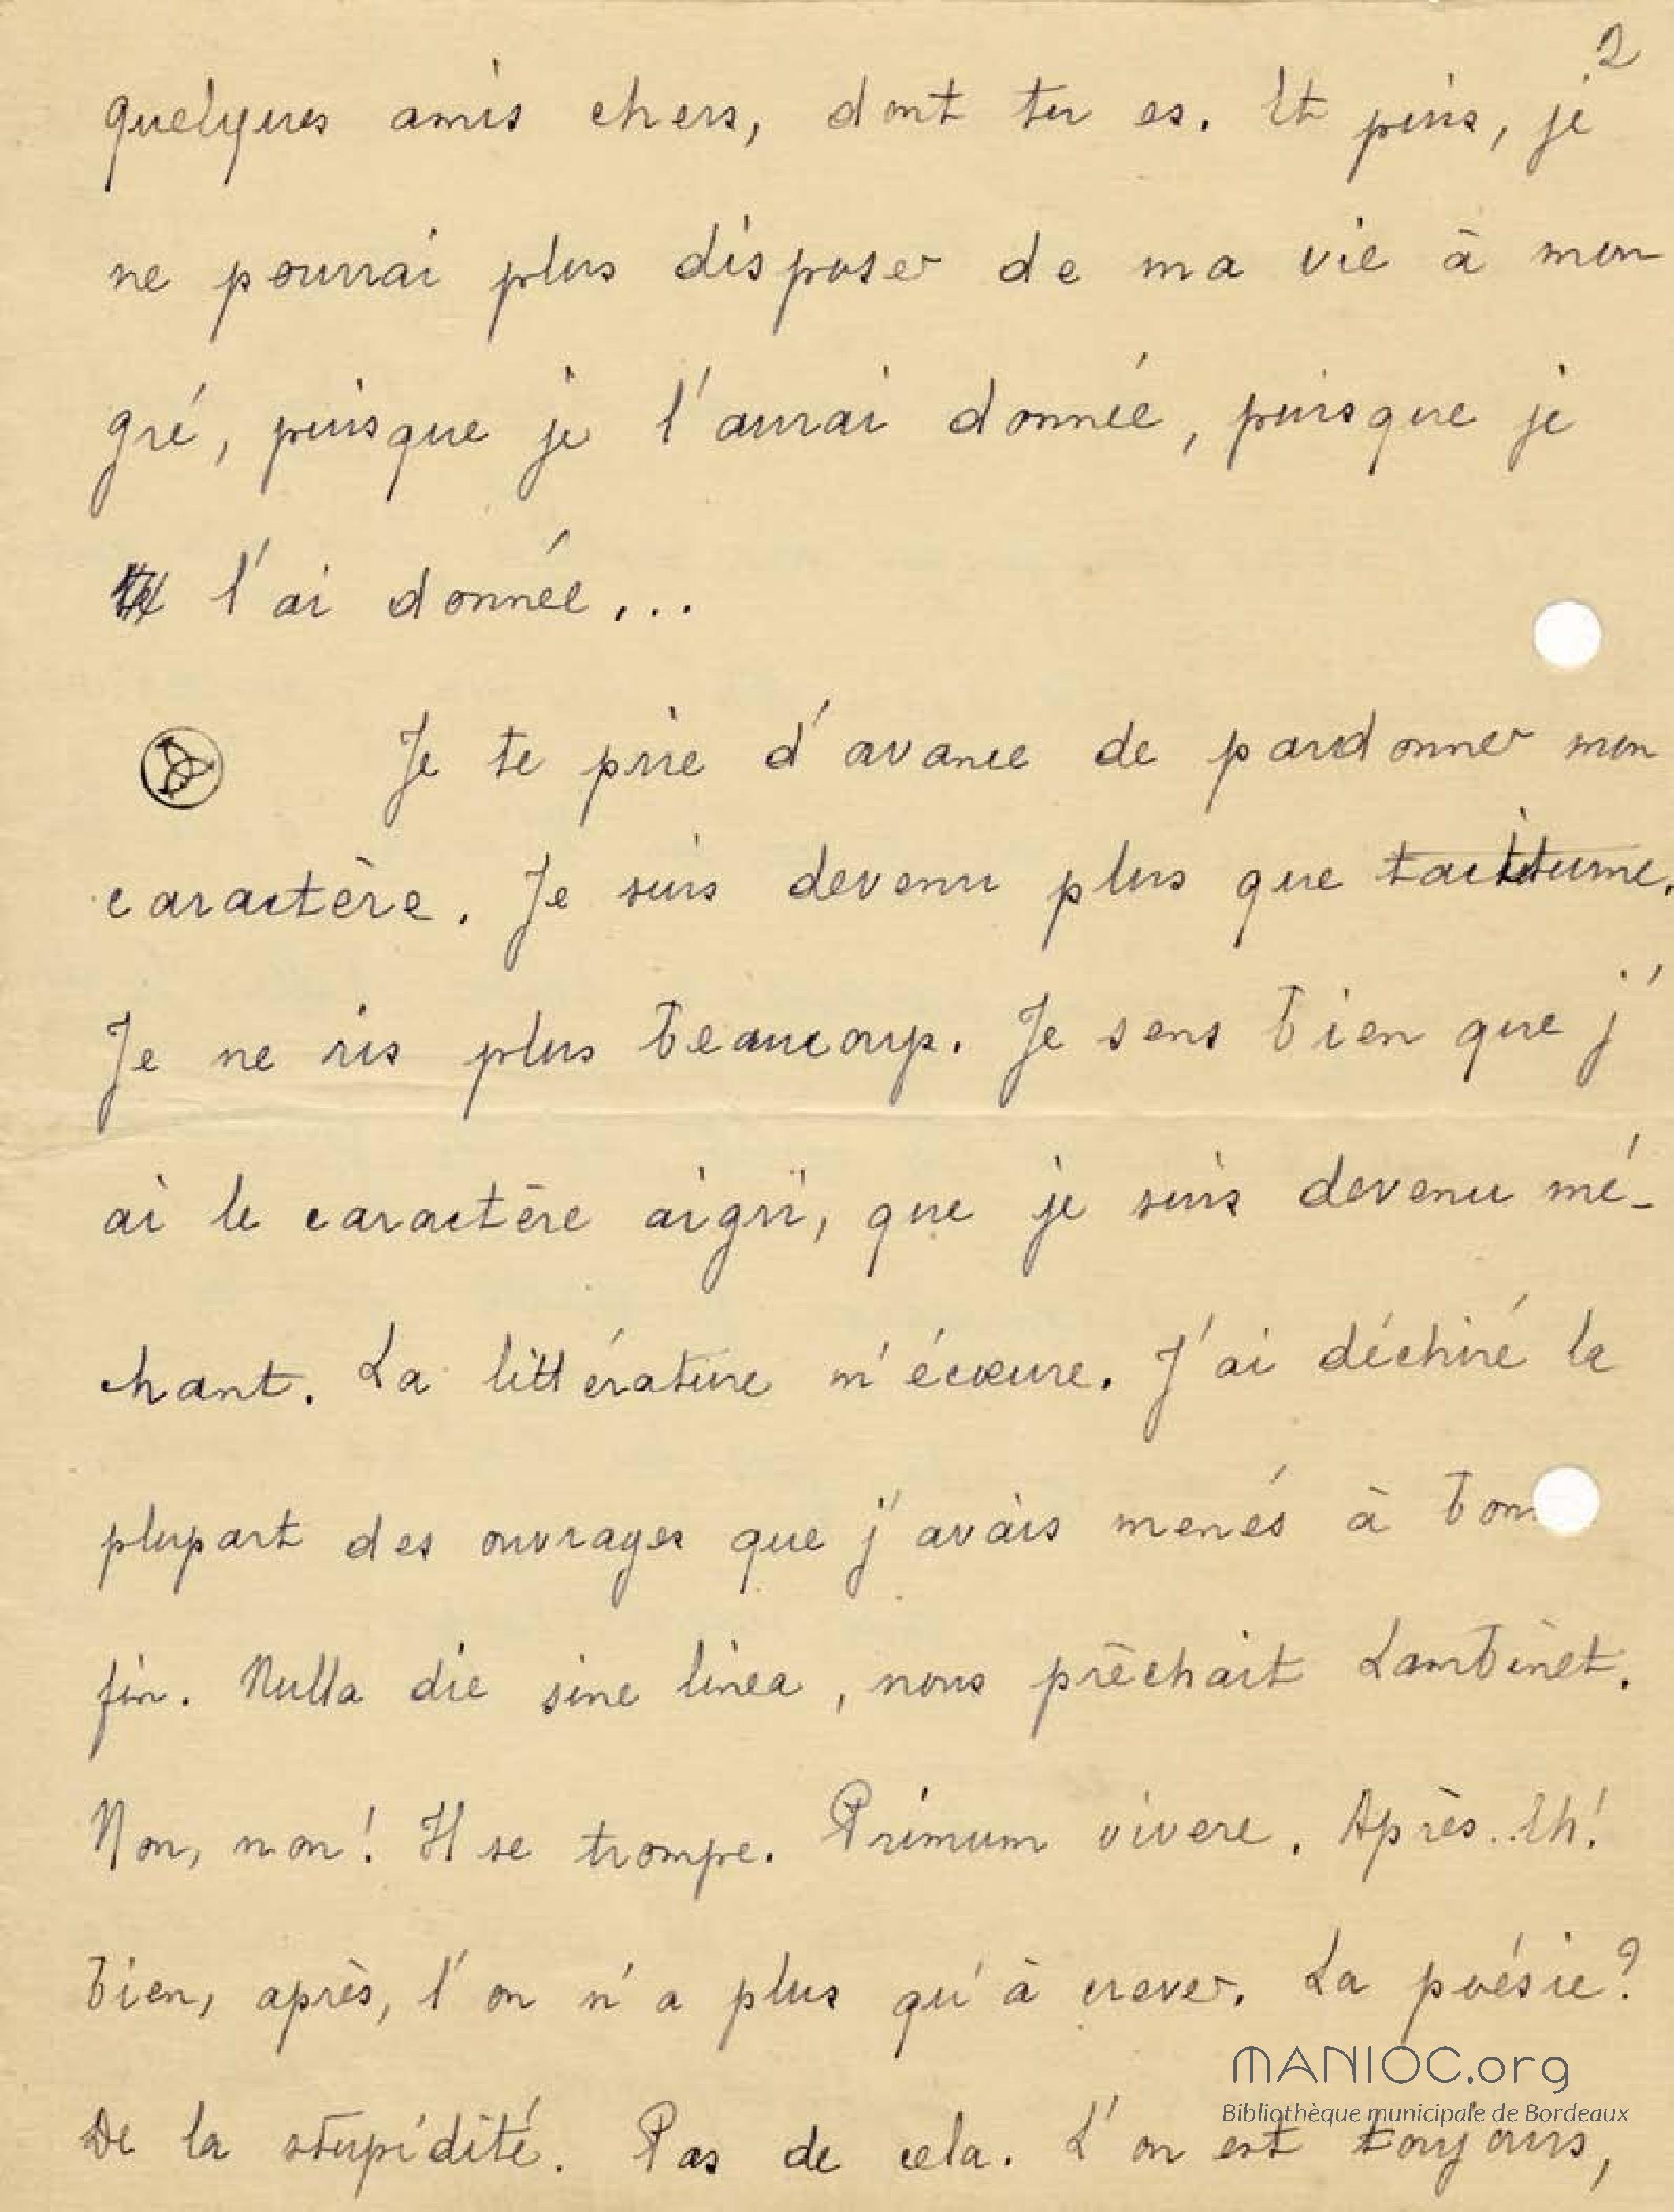 2
quelques amis chers, dont tu es. Et puis, je
ne pourrai plus disposer de ma vie à mon
gré, puisque je l'aurai donnée, puisque je
l'ai donnée...
Je te prie d'avance de pardonner mon
caractère. Je suis devenu plus que taciturne.
Je ne ris plus beaucoup. Je sens bien que j'
ai le caractère aigri, que je suis devenu mé-
chant. La littérature m'écœure. J'ai déchiré la
plupart des ouvrages que j'avais menés à bonne
fin. Nulla die sine linea, nous prêchait Lambinet.
Non, non! Il se trompe. Primum vivere. Après.. Eh!
bien, après, l'on n'a plus qu'à crever. La poésie?
De la stupidité. Pas de cela. L'on est toujours,
MANIOC.org
Bibliothèque municipale de Bordeaux